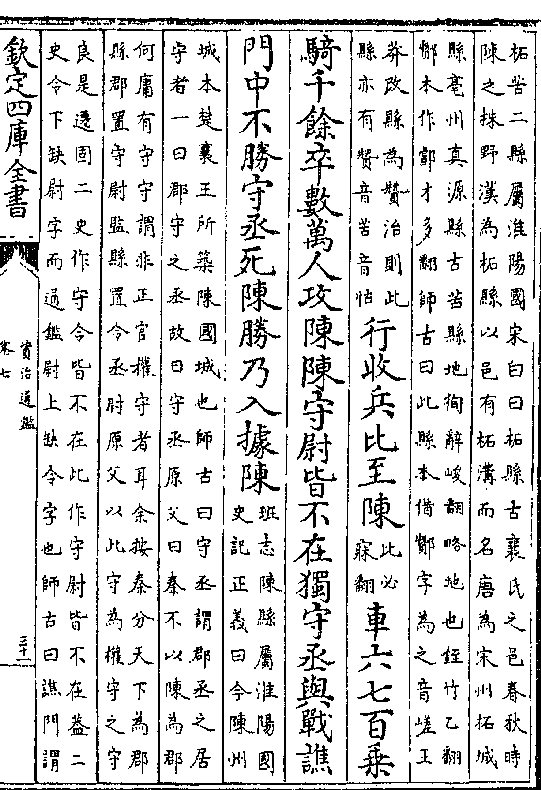 柘苦二縣屬淮陽國宋白曰柘縣古襄氏之邑春秋時
陳之株野漢為柘縣以邑有柘溝而名唐為宋州柘城
縣亳州真源縣古苦縣地徇辭峻翻略地也銍竹乙翻
酇本作𨝏才多翻師古曰此縣本借酇字為之音嵯王
莽改縣為贊治則此
縣亦有贊音苦音怙
行收兵比至陳
此必
寐翻
車六七百乗
騎千餘卒數萬人攻陳陳守尉皆不在獨守丞與戰譙
門中不勝守丞死陳勝乃入據陳
班志陳縣屬淮陽國
史記正義曰今陳州
城本楚襄王所築陳國城也師古曰守丞謂郡丞之居
守者一曰郡守之丞故曰守丞原父曰秦不以陳為郡
何庸有守守謂非正官權守者耳余按秦分天下為郡
縣郡置守尉監縣置令丞尉原父以此守為權守之守
良是遷固二史作守令皆不在此作守尉皆不在葢二
史令下缺尉字而通鑑尉上缺令字也師古曰譙門謂
欽定四庫全書
資治通鑑
卷七
三十二